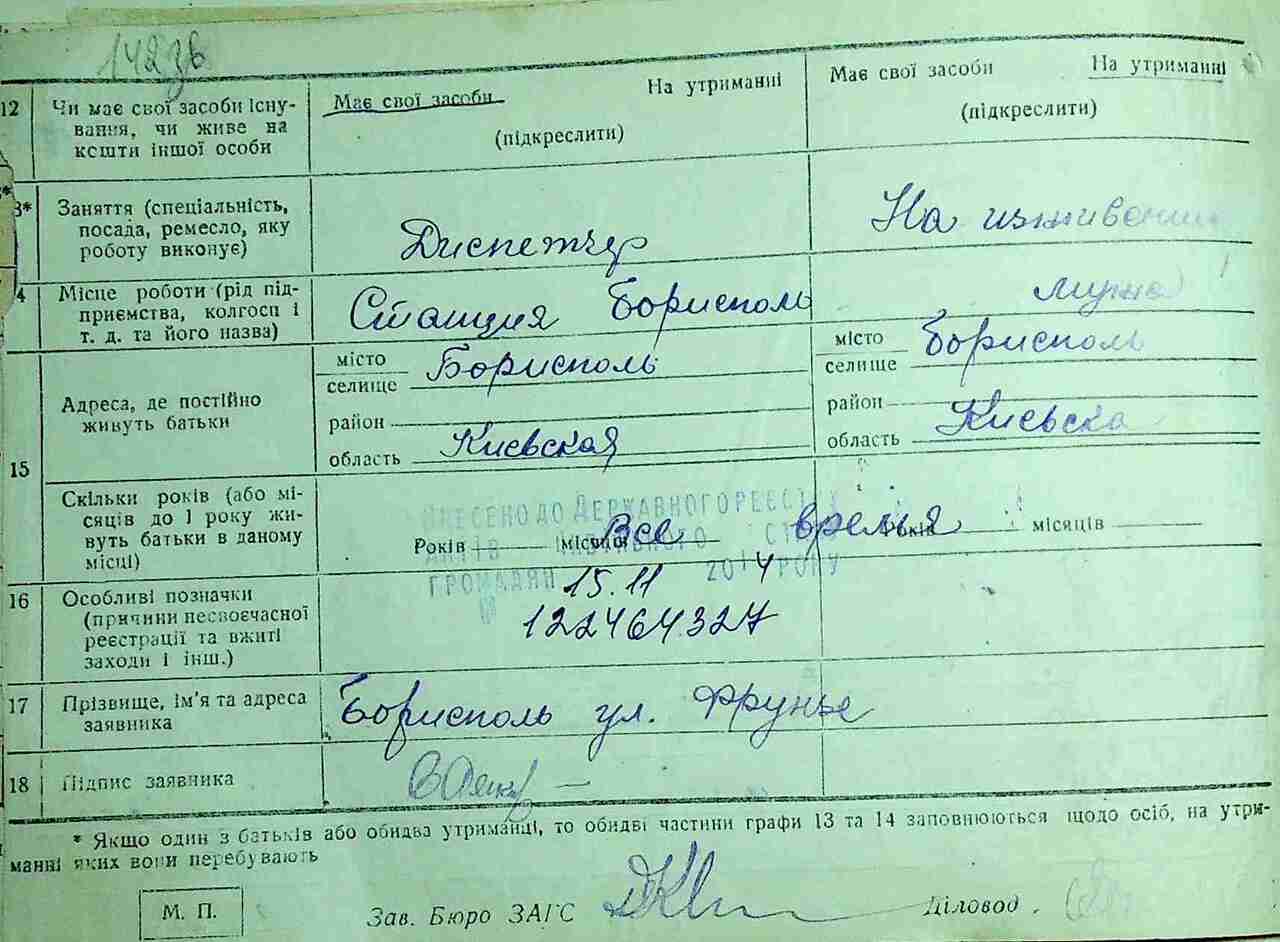 142зв
12 Чи має свої засоби існу-
вання, чи живе на
кошти іншої особи
Має свої засоби На утриманні
(підкреслити)
Має свої засоби На утриманні
(підкреслити)
13* Заняття (спеціальність,
посада, ремесло, яку
роботу виконує)
Диспетчер
На иживении
14 Місце роботи (рід під-
приємства, колгосп і
т. д. та його назва)
Станция Борисполь
мужа
15 Адреса, де постійно
живуть батьки
місто Борисполь
селище
район
область Киевская
місто Борисполь
селище
район
область Киевска
Скільки років (або мі-
сяців до 1 року жи-
вуть батьки в даному
місці)
Років місяців Все время Років місяців
ВНЕСЕНО ДО ДЕРЖАВНОГО РЕЄСТРУ
АКТІВ ЦИВІЛЬНОГО СТАНУ
ГРОМАДЯН 15.11 2014 РОКУ
122464327
16 Особливі позначки
(причини несвоєчасної
реєстрації та вжиті
заходи і інш.)
17 Прізвище, ім'я та адреса
заявника
Борисполь ул. Фрунзе
18 Підпис заявника
* Якщо один з батьків або обидва утриманці, то обидві частини графи 13 та 14 заповнюються щодо осіб, на утри-
манні яких вони перебувають
М. П.
Зав. Бюро ЗАГС
Діловод